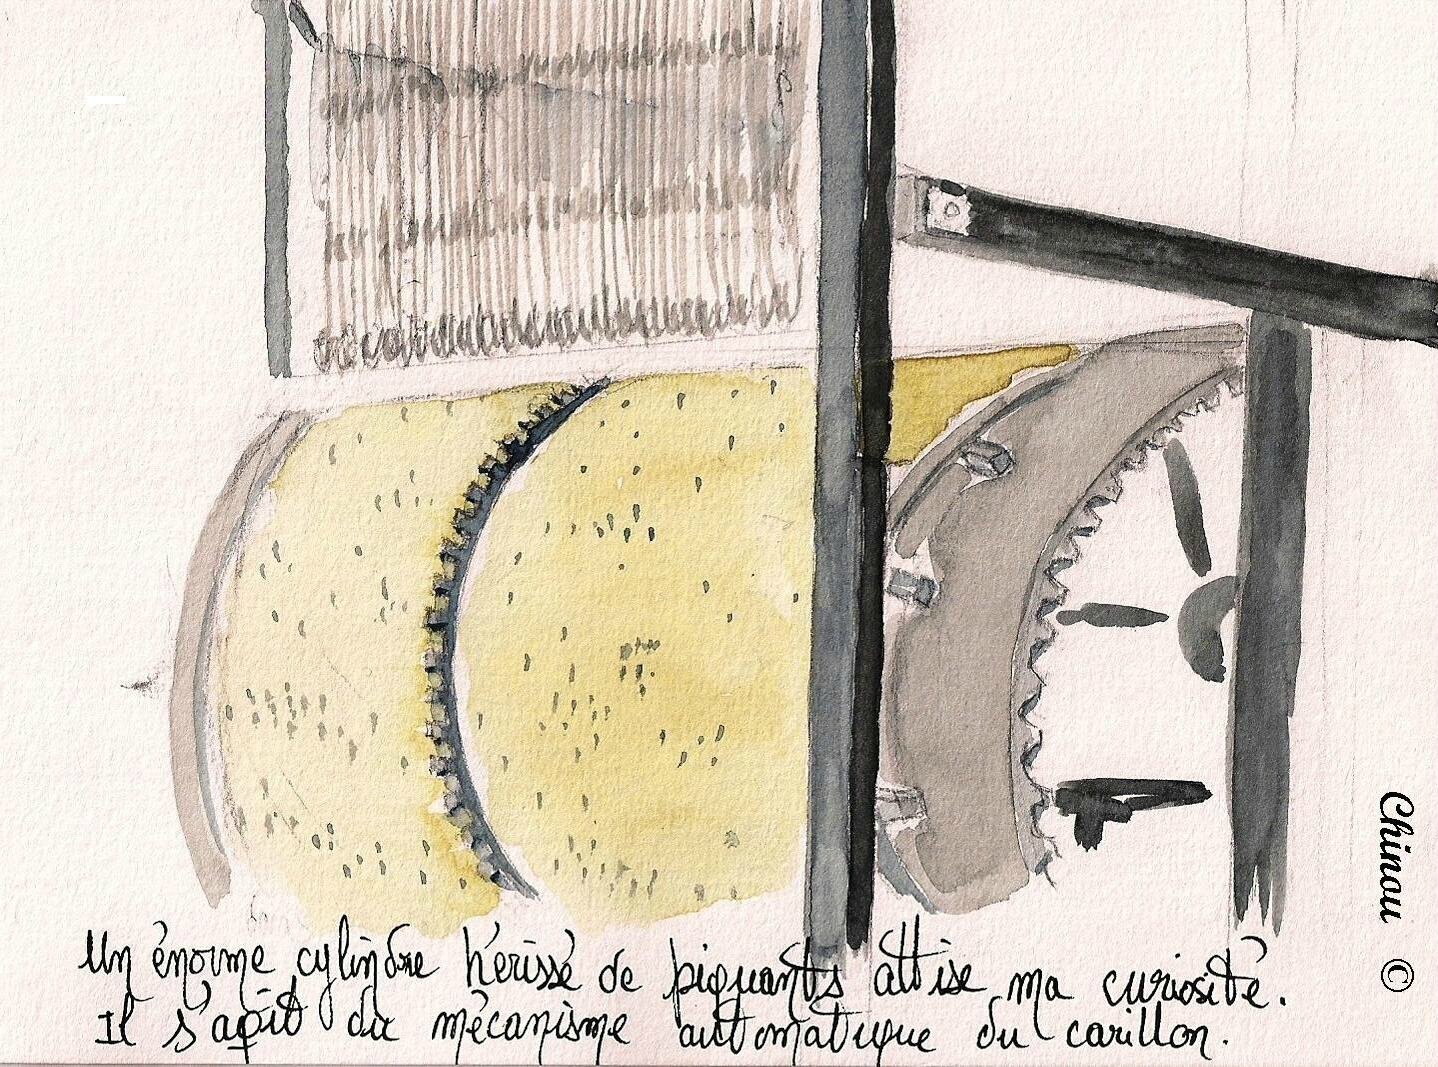 Un énorme cylindre hérissé de piquants attise ma curiosité.
Il s'agit du mécanisme automatique du carillon.
Chinou ©